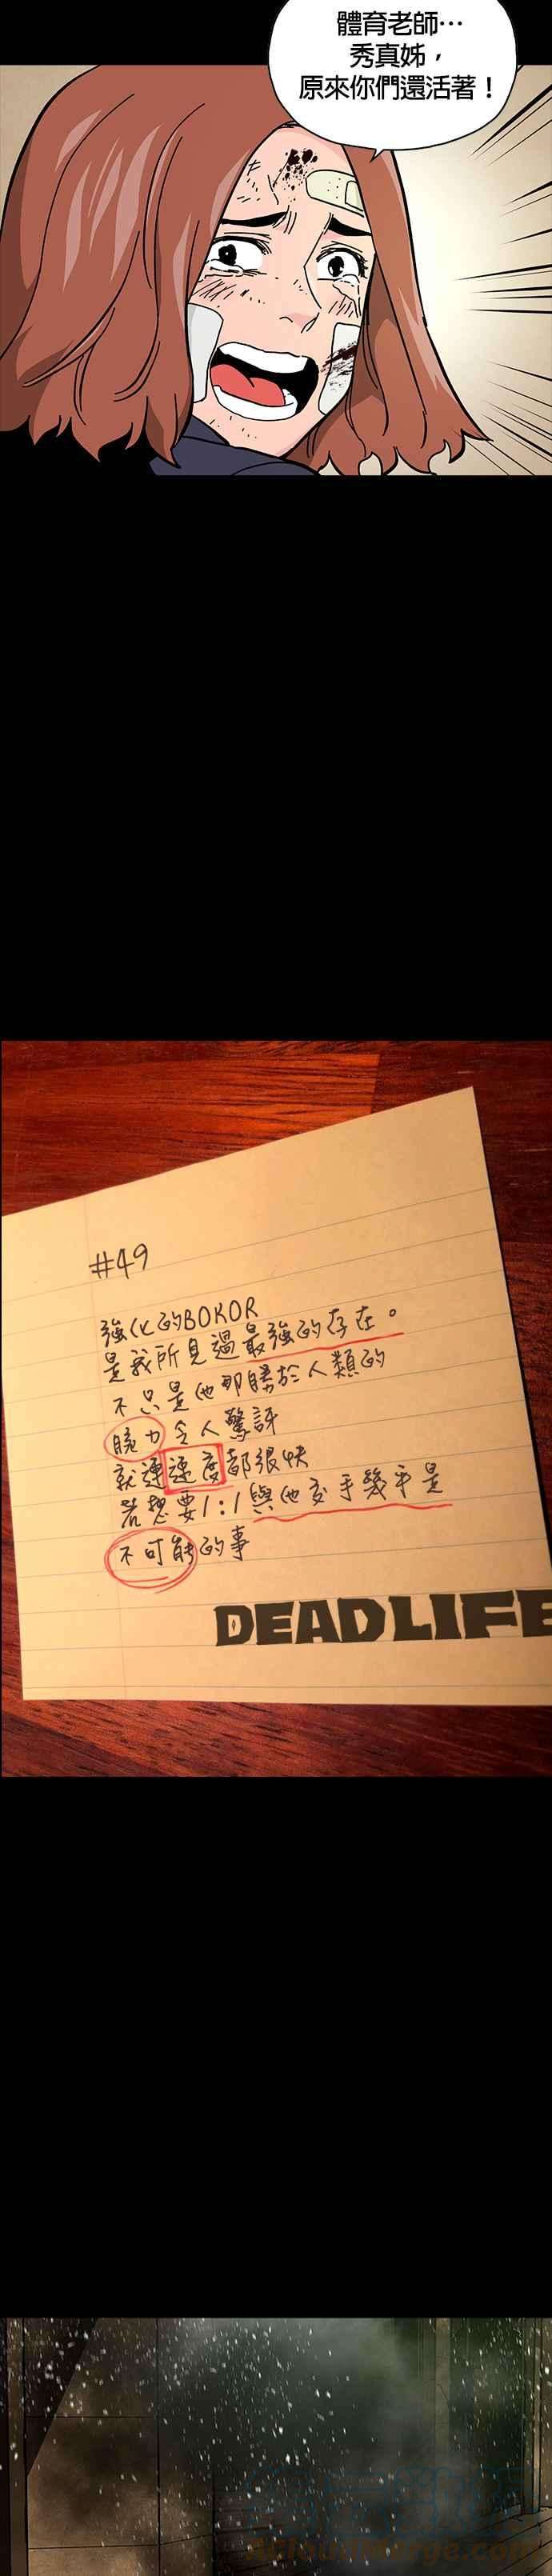 體育老師…
秀真姊，
原來你們還活著！
#49
強化的BOKOR
是我所見過最強的存在。
不只是他那勝於人類的
腕力令人驚訝
就連速度都很快
若想要1:1與他交手幾乎是
不可能的事
DEADLIFE